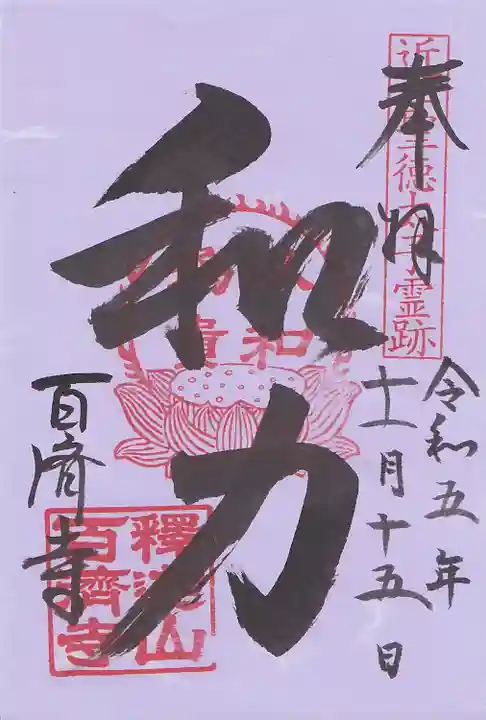 奉拝
近江聖徳太子霊跡
令和五年
十一月十五日
和力
以和
為貴
百済寺
釋迦山
百濟寺